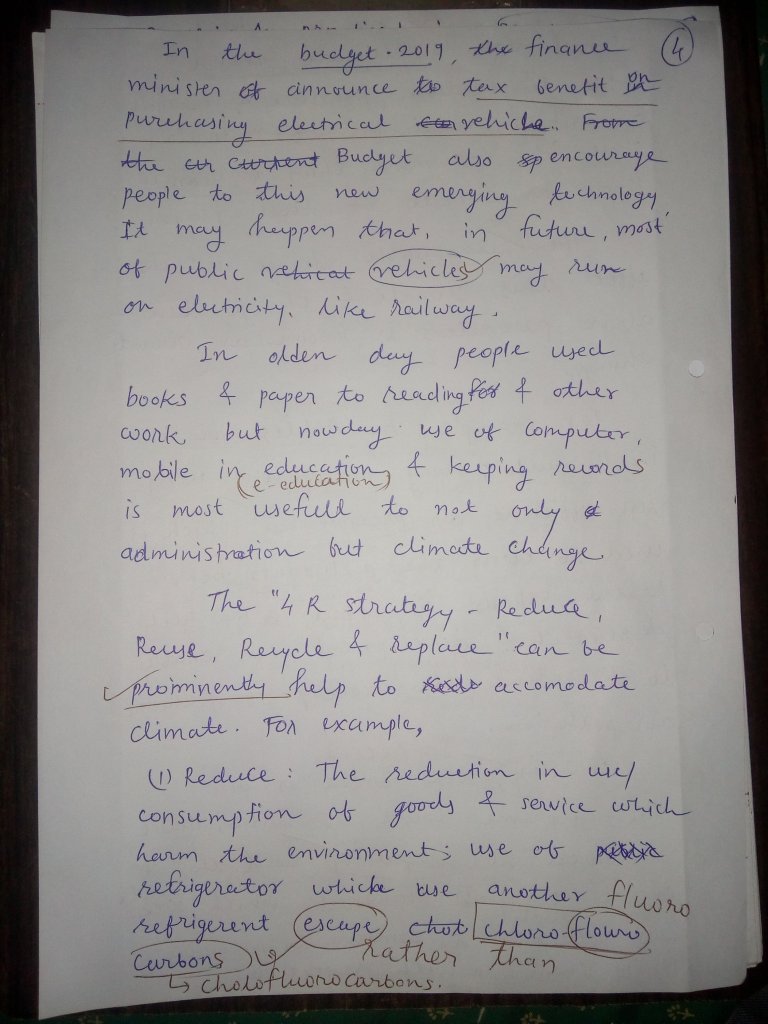 In the budget-2019, the finance
4
minister of announce to tax benefit on
purchasing electrical car vehicle. From
the cur current Budget also sp encourage
people to this new emerging technology
It may happen that, in future, most
of public vehical vehicles may run
on electricity, like railway.
In olden day people used
books & paper to reading for & other
work, but nowday use of computer,
mobile in education, & keeping records
(e-education)
is most usefull to not only
administration but climate change.
The "4 R strategy - Reduce,
Reuse, Recycle & replace" can be
prominently help to accomodate
climate. For example,
(1) Reduce: The reduction in use/
consumption of goods & service which
harm the environment; use of public
refrigerator whiche use another fluoro
refrigerent escape chot chloro-flouro
carbons rather than
↳ cholofluorocarbons.